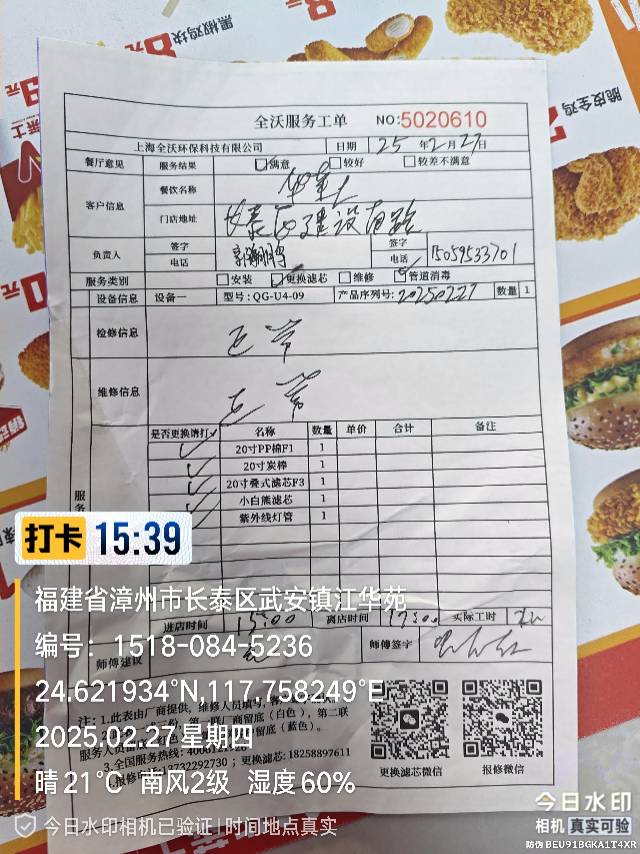 黑椒鸡块
脆皮全鸡
全沃服务工单 NO:5020610
上海全沃环保科技有限公司 日期 25年2月27日
餐厅意见 服务结果 满意 较好 较差不满意
客户信息 餐饮名称 华莱士
门店地址 长泰区建设南路
负责人 签字 电话 签字 电话 15059533701
服务类别 安装 更换滤芯 维修 管道消毒
设备信息 设备一 型号:QG-U4-09 产品序列号:20250227 数量 1
检修信息 正常
维修信息 正常
是否更换请打✓ 名称 数量 单价 合计 备注
✓ 20寸PP棉F1 1
✓ 20寸炭棒 1
✓ 20寸叠式滤芯F3 1
✓ 小白熊滤芯 1
✓ 紫外线灯管 1
服务
打卡 15:39
进店时间 15:00 离店时间 17:00 实际工时
师傅建议 无 师傅签字
福建省漳州市长泰区武安镇江华苑
编号: 1518-084-5236
24.621934°N,117.758249°E
2025.02.27 星期四
晴 21℃ 南风2级 湿度60%
注:1.此表由厂商提供,维修人员填写,
第一联厂商留底(白色),第二联
服务人员 留底(蓝色)。
3.全国服务热线:
13732292730;更换滤芯:18258897611
更换滤芯微信 报修微信
今日水印相机已验证 时间地点真实
今日水印
相机 真实可验
防伪 BEU91BGKA1T4XR